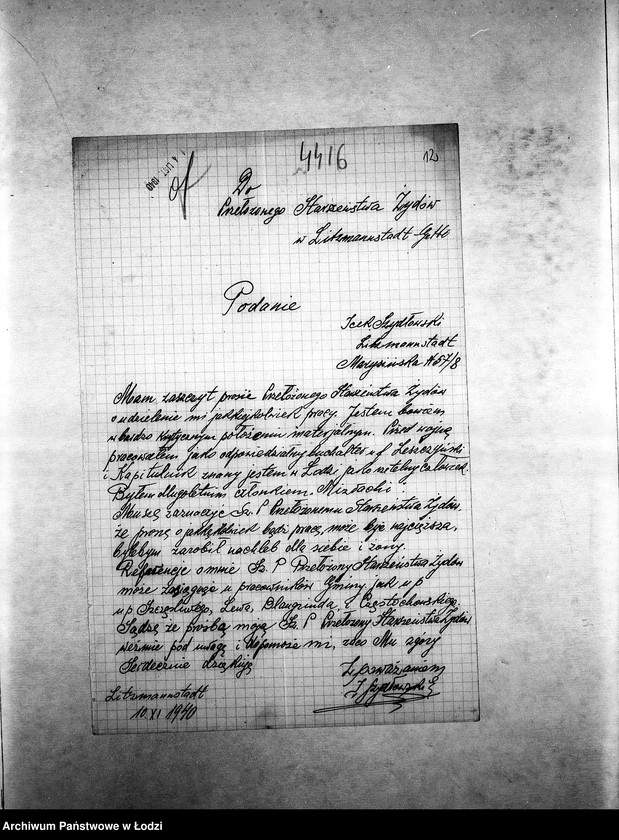 4416
12
Do
Przełożonego Starszeństwa Żydów
w Litzmannstadt-Getto
Podanie
Icek Szydłowski
Litzmannstadt
Marysińska
Mam zaszczyt prosić Przełożonego Starszeństwa Żydów
o udzielenie mi jakiejkolwiek pracy. Jestem bowiem
w bardzo krytycznym położeniu materjalnym. Przed wojną
pracowałem jako odpowiedzialny buchalter u f. Leszczyński
i Kapitulnik znany jestem w Łodzi jako rzetelny człowiek.
Byłem długoletnim członkiem Mizrachi
Muszę zaznaczyć Sz. P Przełożonemu Starszeństwa Żydów,
że proszę o jakąkolwiek bądź pracę, może być najcięższa,
bylebym zarobił na chleb dla siebie i żony.
Referencje o mnie Sz. P Przełożony Starszeństwa Żydów
może zasięgnąć u pracowników Gminy jak u p
u p Szczęśliwego, Lewa, Blaugrunda, Częstochowskiego,
Sądzę że prośbę moją Sz. P Przełożony Starszeństwa Żydów
weźmie pod uwagę i dopomoże mi, za co Mu zgóry
Serdecznie dziękuję
Z poważaniem
I Szydłowski
Litzmannstadt
10.XI 1940
Archiwum Państwowe w Łodzi